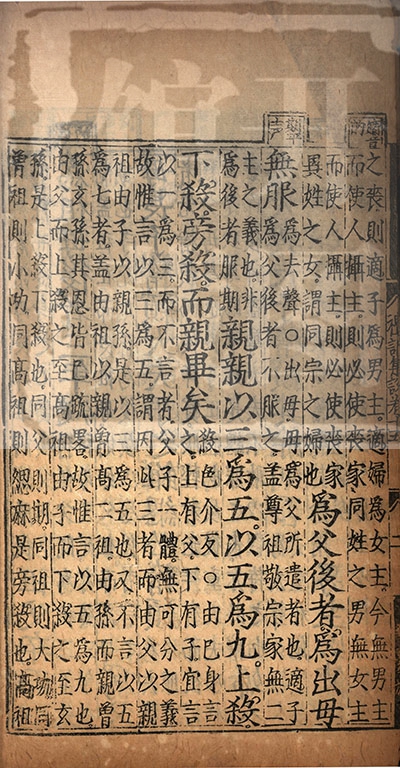 之喪則適子為男主。適婦為女主。今無男主
而使人攝主。則必使喪家同姓之男無女主
而使人攝主。則必使喪家
異姓之女。謂同宗之婦也
為父後者。為出母
無服。
為去聲○出母母為父所遣者也。適子
為父後者不服之。蓋尊祖敬宗家無二
主之義也。非
為後者服期
親親以三為五。以五為九。上殺。
下殺。旁殺。而親畢矣。
殺色介反○由已身言
之上有父下有子宜言
以一為三而不言者父子一體。無可分之義
故惟言以三為五。謂因此三者而由父以親
祖由子以親孫是以三為五也又不言以五
為七者蓋由祖以親曾高二祖由孫而親曾
孫玄孫其恩皆已疏畧故惟言以五為九也
由父而上殺之至高祖由子而下殺之至玄
孫是上殺下殺也同父則期同祖則大功同
曾祖則小功同高祖則緦麻是旁殺也。高祖